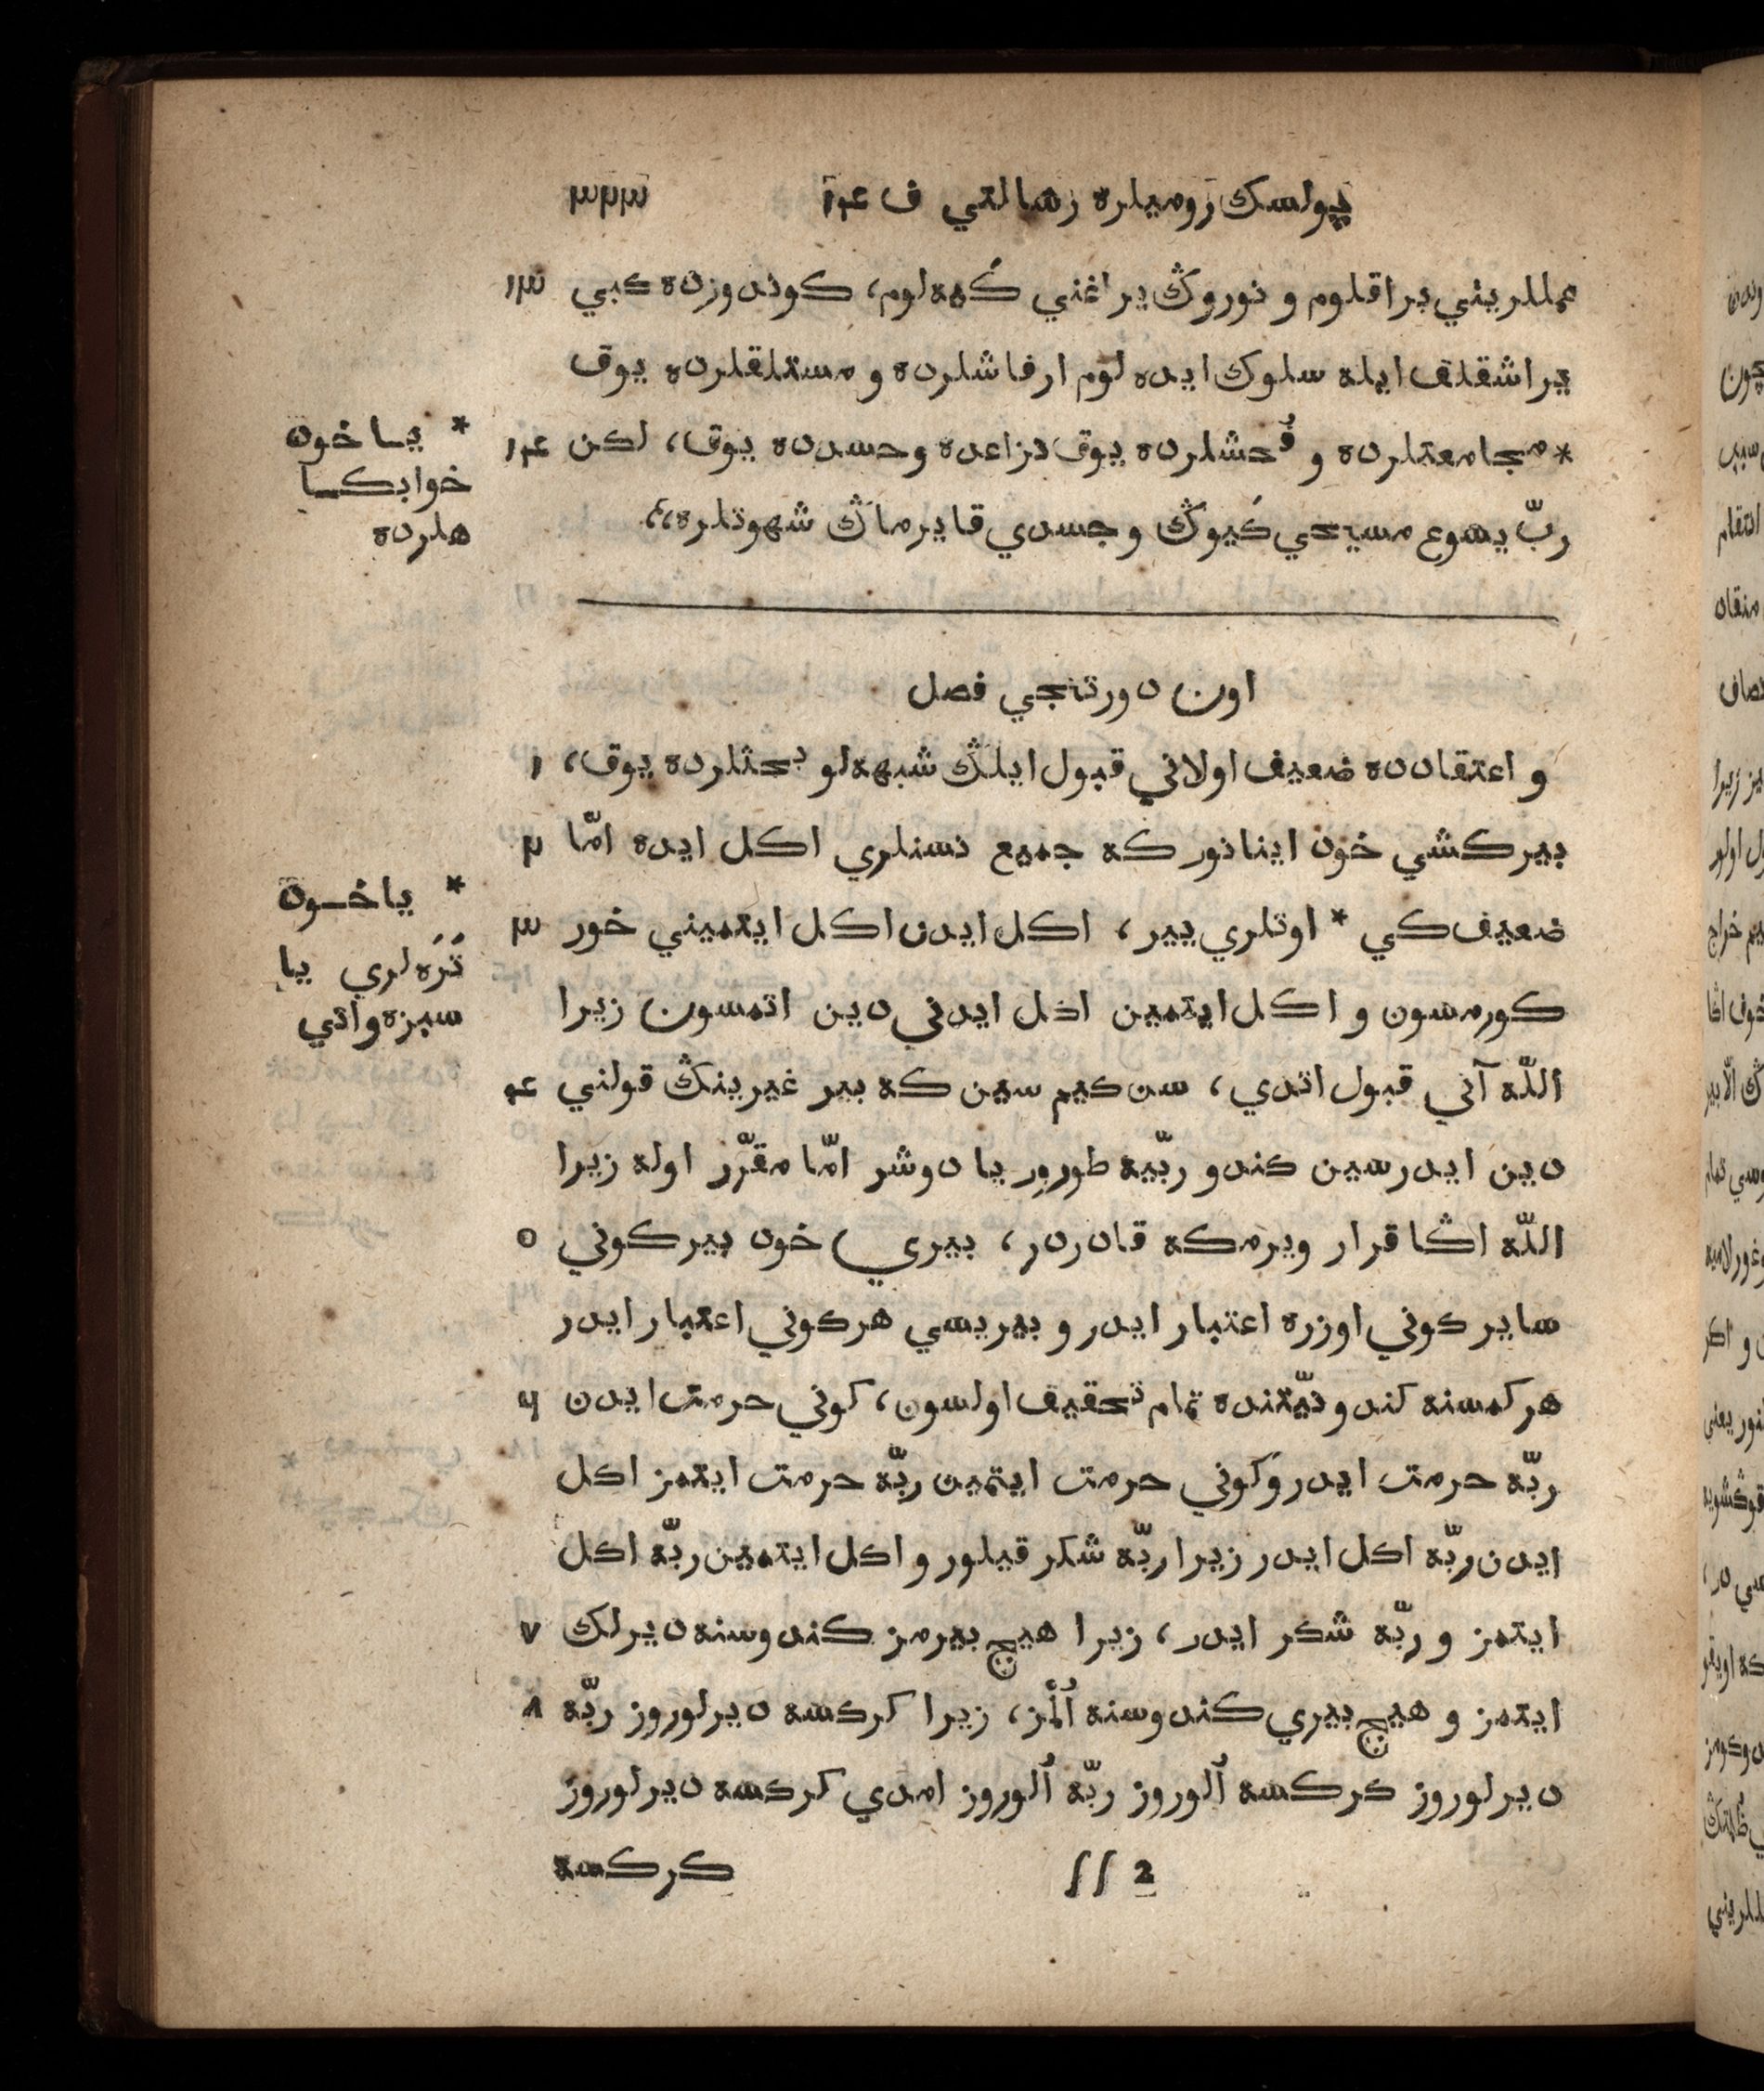 پولسك روميلره رسالتي ف ١٤ ٣٢٣
عمللريني براقلوم و نوروڭ يراغني گيه لوم، كوندوزده كبي ١٣
يراشقلق ايله سلوك ايده لوم اوفاشلرده و مستلقلرده يوق
* مجامعتلرده و فُحشلرده يوق نزاعده و حسدده يوق، لكن ١٤
* ياخود
خوابكا
هلرده
ربّ يسوع مسيحي گيوڭ و جسدي قايرماڭ شهوتلره،،
اون دورتنجي فصل
و اعتقادده ضعيف اولاني قبول ايلڭ شبهه لو بحثلرده يوق، ١
بيركشي خود اينانور كه جميع نسنلري اكل ايده امّا ٢
ضعيف كي * اوتلري يير، اكل ايدن اكل ايتميني خور ٣
* ياخود
تَرَه لري يا
سبزه واتي
كورمسون و اكل ايتمين اكل ايدني دين اتمسون زيرا
اللّه آني قبول اتدي، سن كيم سين كه بير غيرينڭ قولني ٤
دين ايدرسين كندو ربّيه طورور يا دوشر امّا مقرّر اوله زيرا
اللّه اڭا قرار ويرمكه قادردر، بيري خود بير كوني ٥
ساير كوني اوزره اعتبار ايدر و بيريسي هر كوني اعتبار ايدر
هر كمسنه كندو نيّتنده تمام تحقيق اولسون، كوني حرمت ايدن ٦
ربّه حرمت ايدر و كوني حرمت ايتمين ربّه حرمت ايتمز اكل
ايدن ربّه اكل ايدر زيرا ربّه شكر قيلور و اكل ايتمين ربّه اكل
ايتمز و ربّه شكر ايدر، زيرا هيچ بيرمز كندوسنه ديرلك ٧
ايتمز و هيچ بيري كندوسنه اُلْمز، زيرا كركسه ديرلوروز ربّه ٨
ديرلوروز كركسه اُلوروز ربّه اُلوروز امدي كركسه ديرلوروز
ſſ 2 كركسه